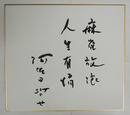 麻雀放浪
人生有
阿佐田哲也